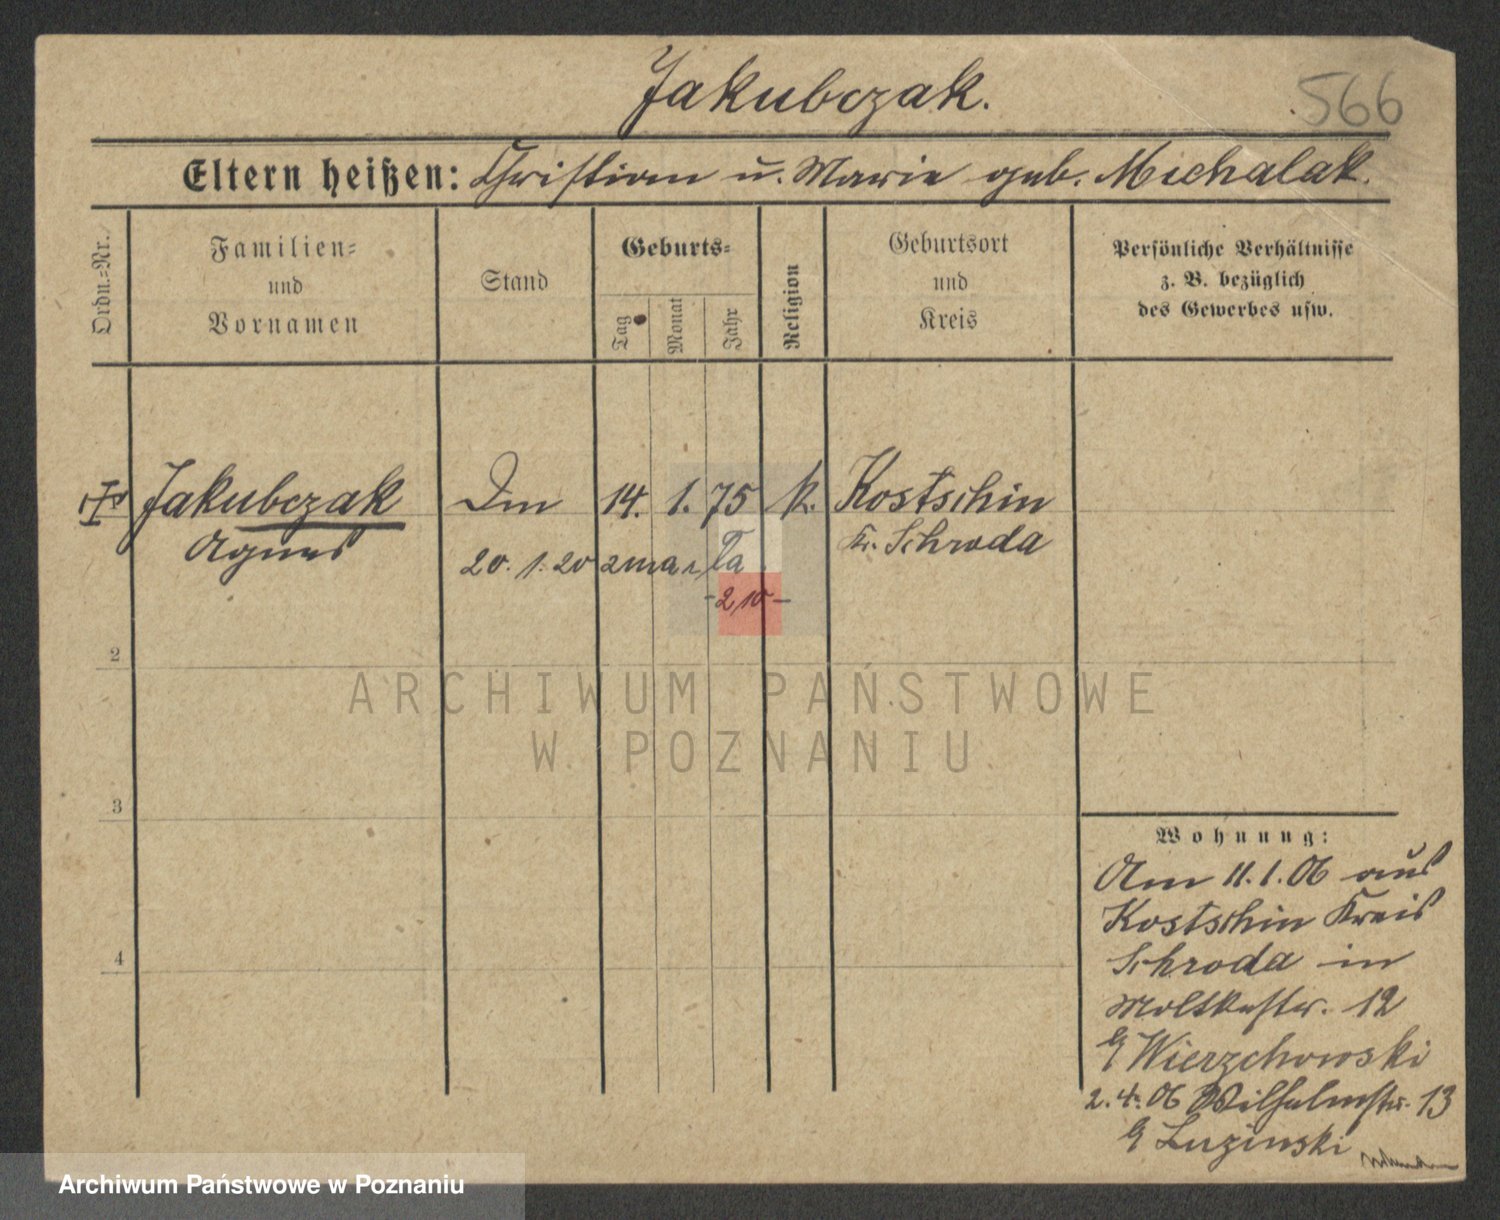 Jakubczak.
566
Eltern heißen: Christian u. Marie geb. Michalak.
Ordn.=Nr.
Familien=
und
Vornamen
Stand
Geburts=
Tag
Monat
Jahr
Religion
Geburtsort
und
Kreis
Persönliche Verhältnisse
z. B. bezüglich
des Gewerbes usw.
Jakubczak 14. 1. 75 k. Kostschin
Agnes Kr. Schroda
20. 1. 20
2
3
4
ARCHIWUM PAŃSTWOWE
W POZNANIU
Wohnung:
Am 11.1.06 aus
Kostschin Kreis
Schroda in
Moltkestr. 12
Wierzchowski
2.4.06 Wilhelmstr. 13
Luzinski
Archiwum Państwowe w Poznaniu